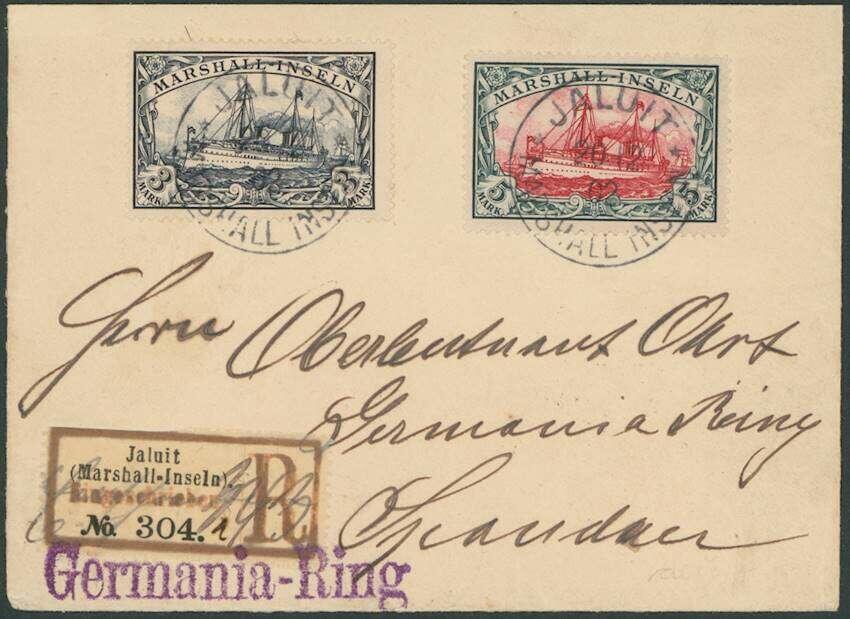 MARSHALL-INSELN
3 MARK 3 MARK
JALUIT
MARSHALL INSELN
MARSHALL-INSELN
5 MARK 5 MARK
JALUIT
MARSHALL INSELN
Herrn Oberleutnant Ohrt
Germania Ring
Spandau
Jaluit
(Marshall-Inseln).
Eingeschrieben
No. 304. R
Germania-Ring